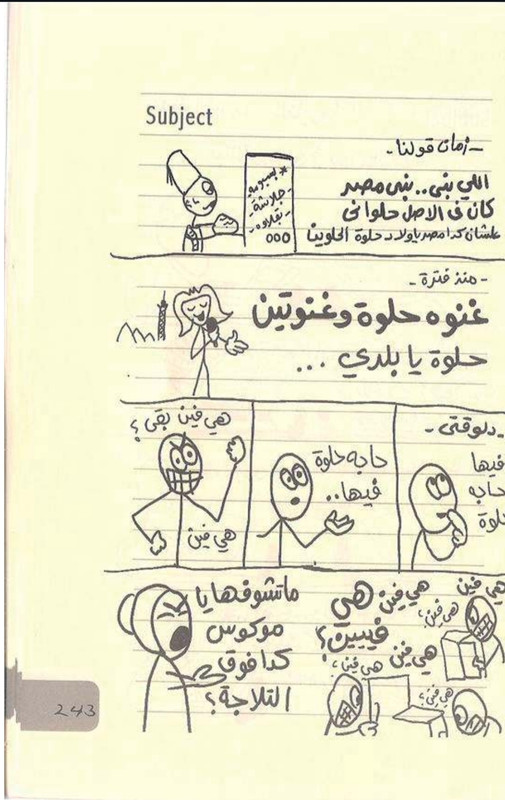 Subject
- زمان قولنا -
اللي بنى .. بنى مصر
كان فى الاصل حلوانى
علشان كدا مصر ياولاد حلوة الحلوينا
* بسبوسة
- جلاشة
- بقلاوه
ooo
- منذ فترة -
غنوه حلوة وغنوتين
حلوة يا بلدي ...
- دلوقتى -
فيها
حاجه
حلوة
حاجه حلوة
فيها ..
هي فين بقى ؟
هي فين
هي فين
هي فين
هي
فييين؟
هي فين؟
هي فين
هي فين؟
هي فين؟
ماتشوفها يا
موكوس
كدا فوق
التلاجة ؟
243